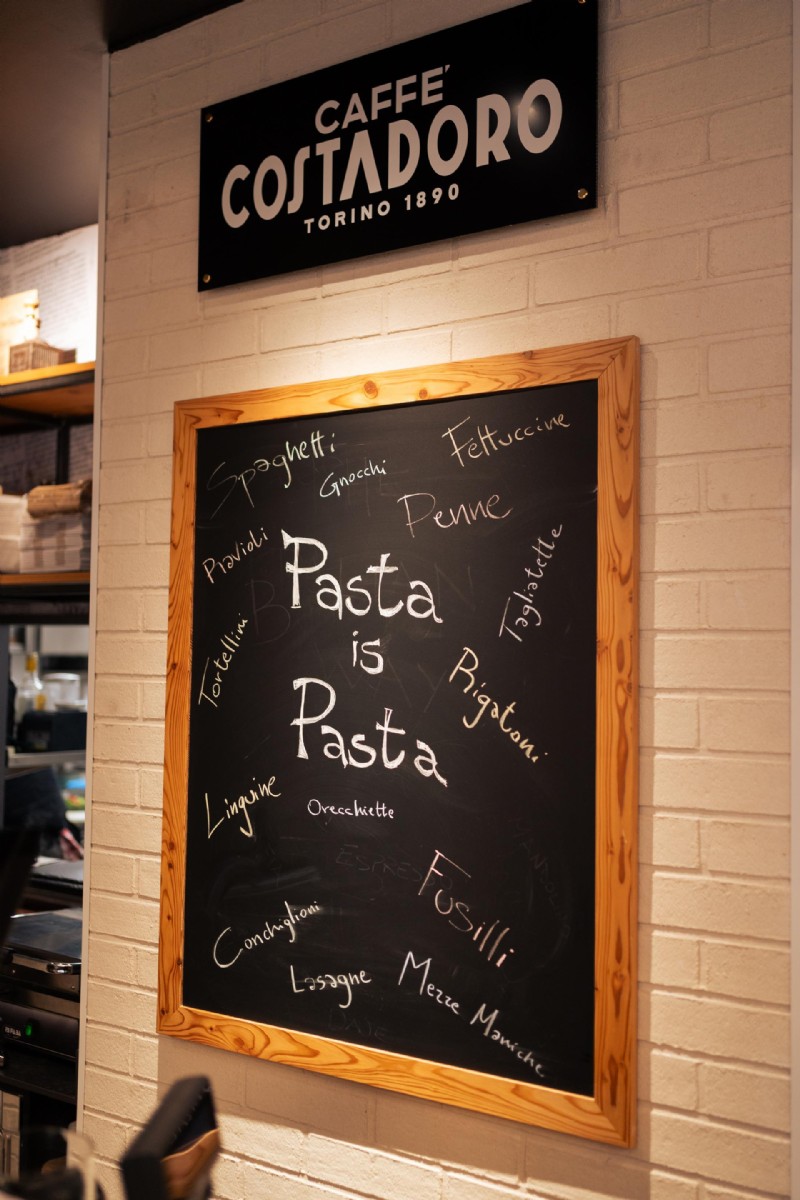 CAFFE'
COSTADORO
TORINO 1890
Spaghetti
Fettuccine
Gnocchi
Penne
Ravioli
Pasta
is
Pasta
Tagliatelle
Tortellini
Rigatoni
Linguine
Orecchiette
Fusilli
Conchiglioni
Lasagne
Mezze Maniche